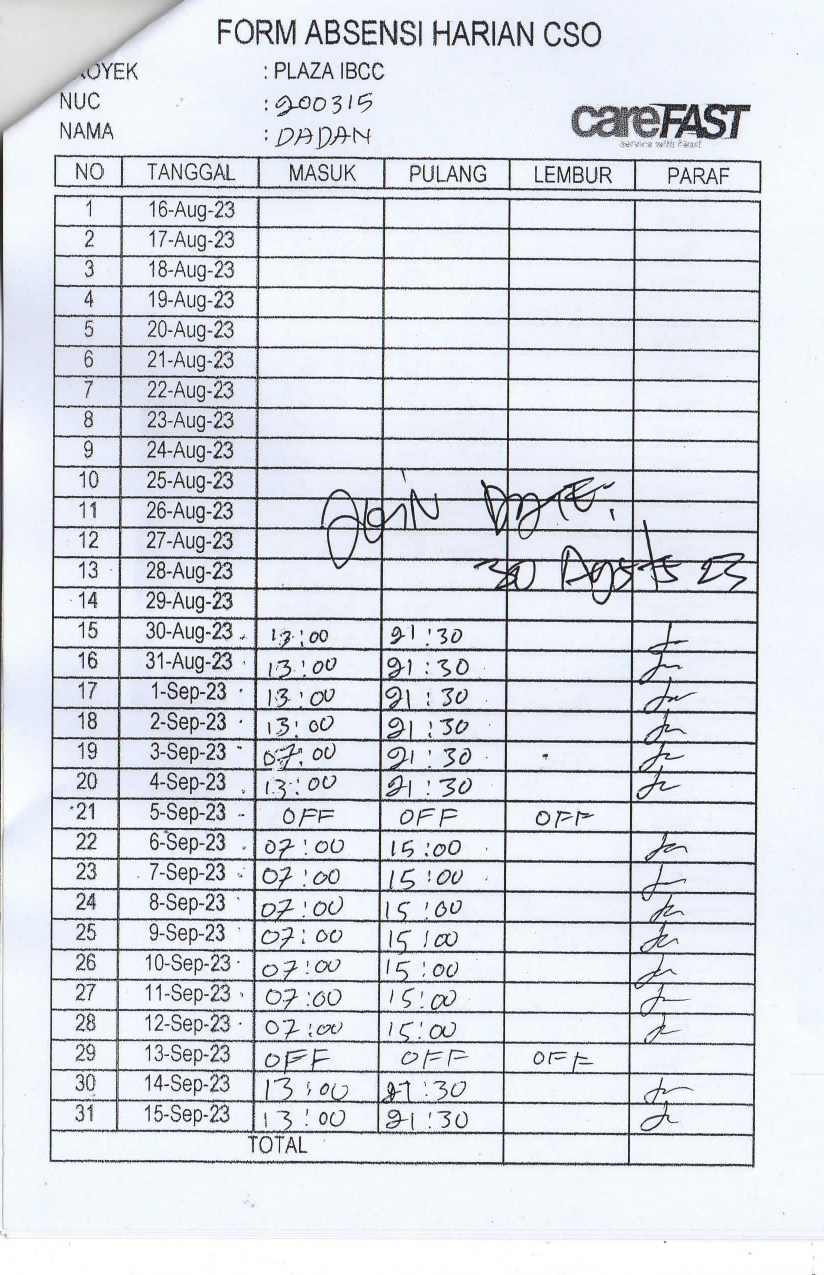 FORM ABSENSI HARIAN CSO
ROYEK : PLAZA IBCC
NUC : 200315
NAMA : DADAN
careFAST
service with heart
NO TANGGAL MASUK PULANG LEMBUR PARAF
1 16-Aug-23
2 17-Aug-23
3 18-Aug-23
4 19-Aug-23
5 20-Aug-23
6 21-Aug-23
7 22-Aug-23
8 23-Aug-23
9 24-Aug-23
10 25-Aug-23
11 26-Aug-23 JOIN DATE:
12 27-Aug-23
13 28-Aug-23 30 Agsts 23
14 29-Aug-23
15 30-Aug-23 13:00 21:30
16 31-Aug-23 13:00 21:30
17 1-Sep-23 13:00 21:30
18 2-Sep-23 13:00 21:30
19 3-Sep-23 07:00 21:30
20 4-Sep-23 13:00 21:30
21 5-Sep-23 OFF OFF OFF
22 6-Sep-23 07:00 15:00
23 7-Sep-23 07:00 15:00
24 8-Sep-23 07:00 15:00
25 9-Sep-23 07:00 15:00
26 10-Sep-23 07:00 15:00
27 11-Sep-23 07:00 15:00
28 12-Sep-23 07:00 15:00
29 13-Sep-23 OFF OFF OFF
30 14-Sep-23 13:00 21:30
31 15-Sep-23 13:00 21:30
TOTAL